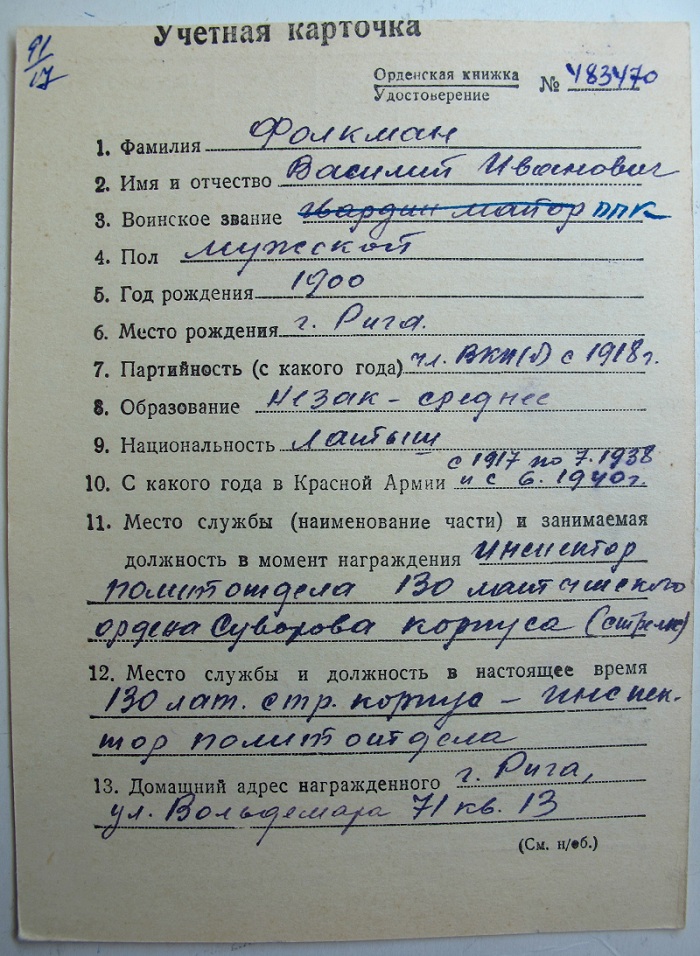 91/17
Учетная карточка
Орденская книжка
Удостоверение
№ 483470
1. Фамилия Фолкман
2. Имя и отчество Василий Иванович
3. Воинское звание гвардии майор ппк
4. Пол мужской
5. Год рождения 1900
6. Место рождения г. Рига.
7. Партийность (с какого года) чл. ВКП(б) с 1918 г.
8. Образование незак-среднее
9. Национальность латыш
с 1917 по 7.1938
10. С какого года в Красной Армии и с 6.1940 г.
11. Место службы (наименование части) и занимаемая
должность в момент награждения инспектор
политотдела 130 латышского
ордена Суворова корпуса (стрелк)
12. Место службы и должность в настоящее время
130 лат. стр. корпус - инспек-
тор политотдела
13. Домашний адрес награжденного г. Рига,
ул. Вольдемара 71 кв. 13
(См. н/об.)